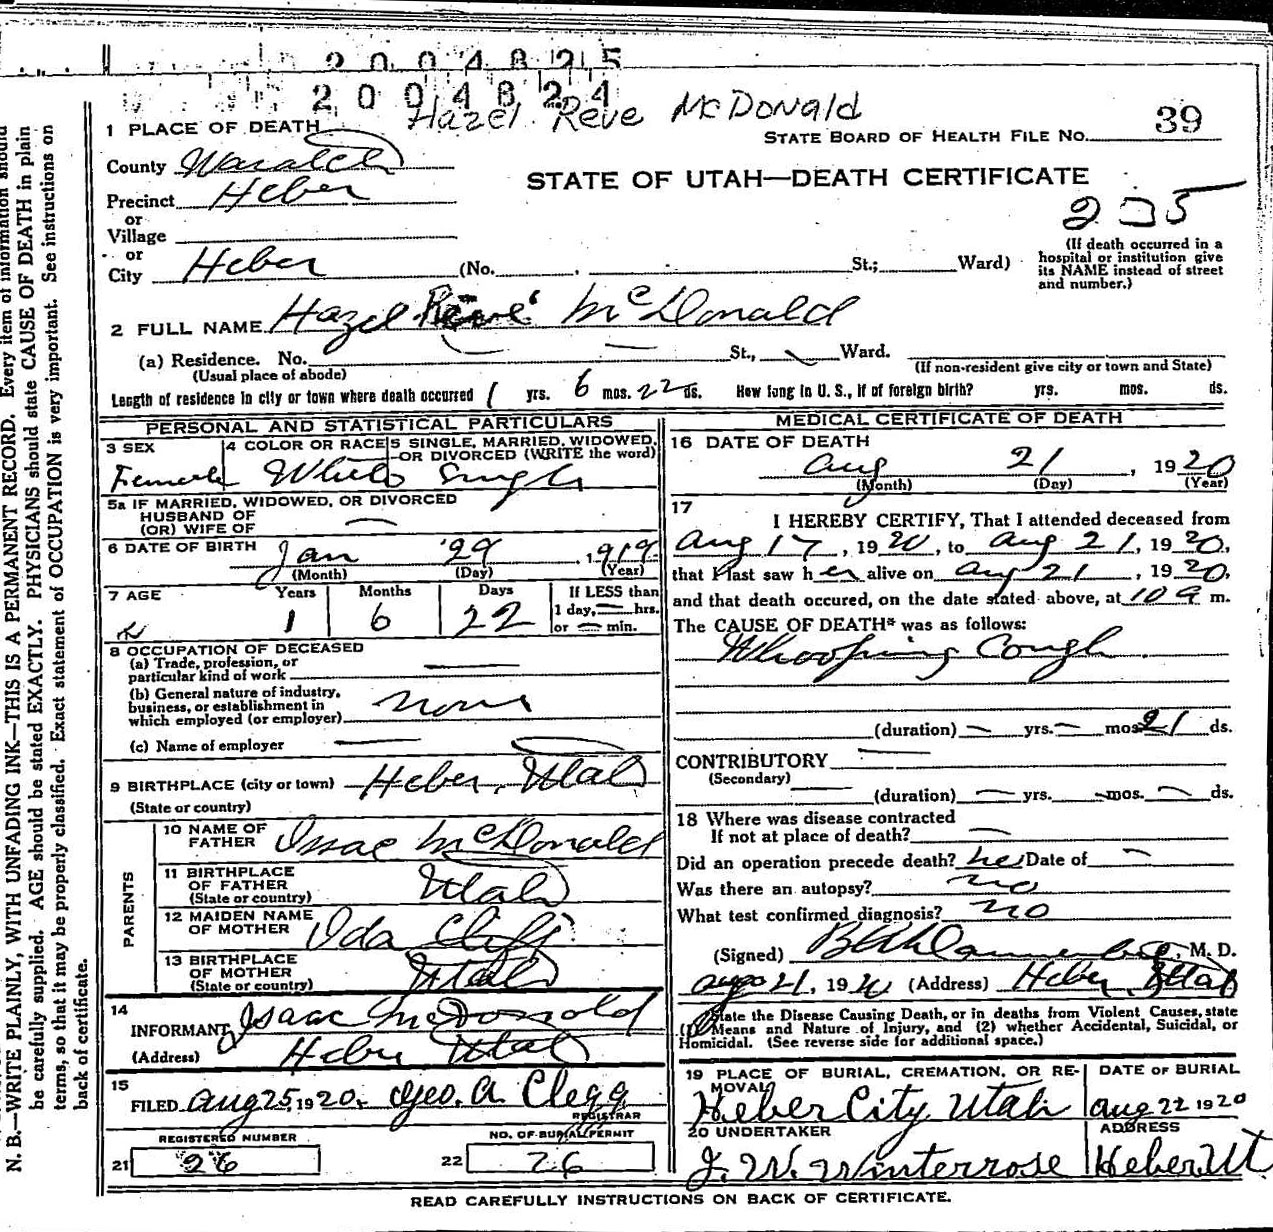 2004825
2004824
Hazel Reve McDonald
1 PLACE OF DEATH
STATE BOARD OF HEALTH FILE No. 39
County Wasatch
STATE OF UTAH—DEATH CERTIFICATE
Precinct Heber
or
Village
or
City Heber (No. St.; Ward)
(If death occurred in a
hospital or institution give
its NAME instead of street
and number.)
2 FULL NAME Hazel Reve McDonald
(a) Residence. No. St., Ward.
(Usual place of abode) (If non-resident give city or town and State)
Length of residence in city or town where death occurred 1 yrs. 6 mos. 22 ds. How long in U. S., if of foreign birth? yrs. mos. ds.
PERSONAL AND STATISTICAL PARTICULARS
3 SEX 4 COLOR OR RACE 5 SINGLE, MARRIED, WIDOWED,
OR DIVORCED (WRITE the word)
Female White Single
5a IF MARRIED, WIDOWED, OR DIVORCED
HUSBAND OF
(OR) WIFE OF
6 DATE OF BIRTH Jan 29, 1919
(Month) (Day) (Year)
7 AGE Years Months Days If LESS than
1 day, — hrs.
1 6 22 or — min.
8 OCCUPATION OF DECEASED
(a) Trade, profession, or
particular kind of work
(b) General nature of industry,
business, or establishment in
which employed (or employer) none
(c) Name of employer
9 BIRTHPLACE (city or town) Heber, Utah
(State or country)
PARENTS
10 NAME OF
FATHER Issac McDonald
11 BIRTHPLACE
OF FATHER Utah
(State or country)
12 MAIDEN NAME
OF MOTHER Ida
13 BIRTHPLACE
OF MOTHER Utah
(State or country)
14
INFORMANT Isaac McDonald
(Address) Heber Utah
15
FILED Aug 25, 1920. Geo. A. Clegg
REGISTRAR
REGISTERED NUMBER NO. OF BURIAL PERMIT
21 26 22 26
MEDICAL CERTIFICATE OF DEATH
16 DATE OF DEATH
Aug 21, 1920
(Month) (Day) (Year)
17
I HEREBY CERTIFY, That I attended deceased from
Aug 17, 1920, to Aug 21, 1920,
that I last saw her alive on Aug 21, 1920,
and that death occured, on the date stated above, at 10 a m.
The CAUSE OF DEATH* was as follows:
Whooping Cough
(duration) — yrs. — mos. 21 ds.
CONTRIBUTORY
(Secondary)
(duration) — yrs. — mos. — ds.
18 Where was disease contracted
If not at place of death?
Did an operation precede death? no Date of —
Was there an autopsy? no
What test confirmed diagnosis? no
(Signed) M. D.
Aug 21, 1920 (Address) Heber Utah
*State the Disease Causing Death, or in deaths from Violent Causes, state
(1) Means and Nature of Injury, and (2) whether Accidental, Suicidal, or
Homicidal. (See reverse side for additional space.)
19 PLACE OF BURIAL, CREMATION, OR RE-
MOVAL DATE OF BURIAL
Heber City, Utah Aug 22 1920
20 UNDERTAKER ADDRESS
J. W. Winterrose Heber, Ut
READ CAREFULLY INSTRUCTIONS ON BACK OF CERTIFICATE.
N. B.—WRITE PLAINLY, WITH UNFADING INK—THIS IS A PERMANENT RECORD. Every item of information should
be carefully supplied. AGE should be stated EXACTLY. PHYSICIANS should state CAUSE OF DEATH in plain
terms, so that it may be properly classified. Exact statement of OCCUPATION is very important. See instructions on
back of certificate.